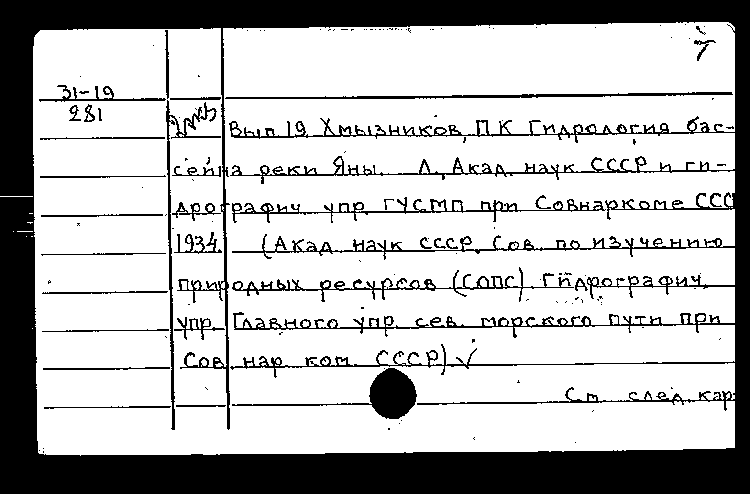 7
31-19
281
Вып 19 Хмызников, П.К Гидрология бас-
сейна реки Яны. Л., Акад. наук СССР и ги-
дрографич. упр. ГУСМП при Совнаркоме ССС
1934. (Акад. наук СССР. Сов. по изучению
природных ресурсов (СОПС). Гидрографич.
упр. Главного упр. сев. морского пути при
Сов. нар. ком. СССР) √
См след. кар